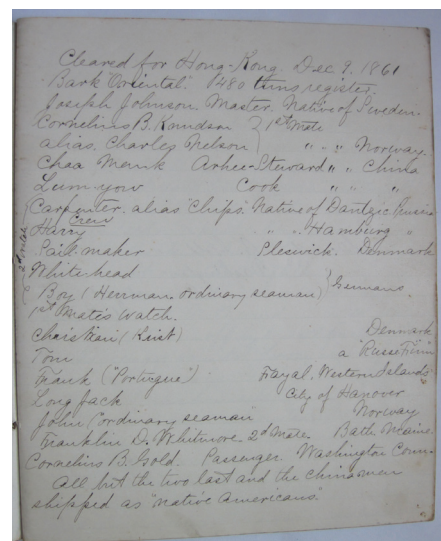 Cleared for Hong-Kong. Dec 9. 1861
Bark "Oriental." 480 tons register.
Joseph Johnson. Master. Native of Sweden.
Cornelius B. Knudson } 1st Mate
alias. Charles Nelson } " " " Norway.
Chaa Menk Arkee - Steward " " China
Lum-yow Cook " " "
Carpenter. alias "Chips". Native of Dantzic
Crew
Harry " " Hamburg "
Sail-maker Sleswick. Denmark
2d Mate
Whitehead
Boy (Herrman. ordinary seaman) } Germans.
1st Mate's Watch.
(Kint) Denmark
Tom a "Russ Finn"
Frank ("Portugue") Fayal. Western Islands
Long Jack City of Hanover
John (ordinary seaman Norway
Franklin D. Whitmore 2d Mate Bath Maine.
Cornelius B. Gold. Passenger Washington Conn.
All but the two last and the Chinamen
shipped as "native Americans."